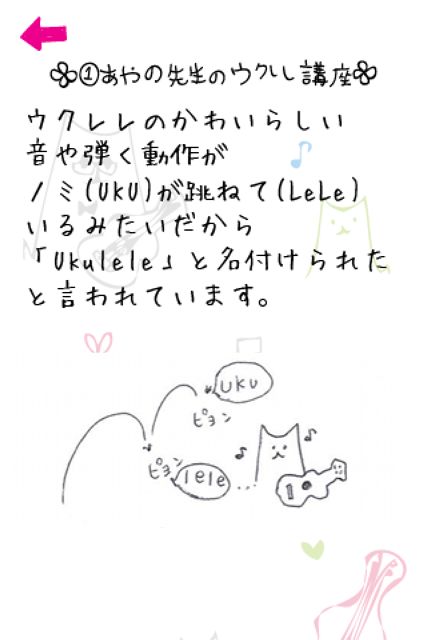 ①あやの先生のウクレレ講座
ウクレレのかわいらしい
音や弾く動作が
ノミ(UKU)が跳ねて(LeLe)
いるみたいだから
「Ukulele」と名付けられた
と言われています。
uku
ピョン
ピョン
lele